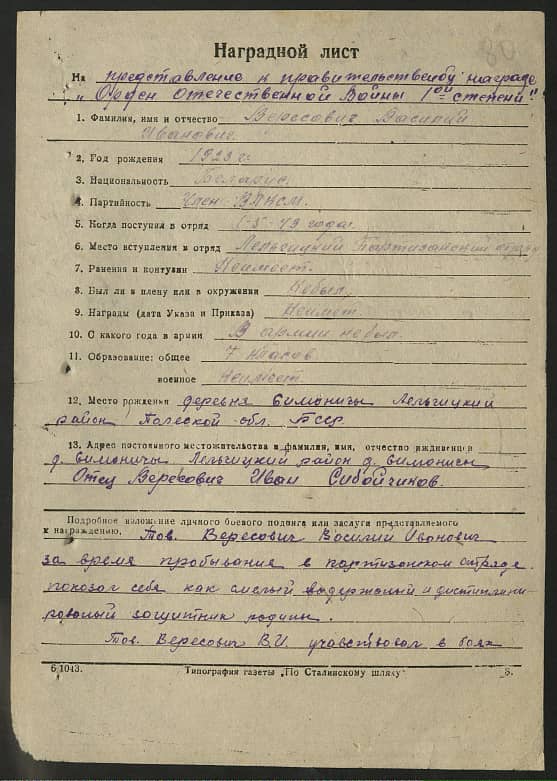 Наградной лист
На представление к правительствебу награде
„Орден Отечественной Войны 1ой степени"
1. Фамилия, имя и отчество Вересович Василий
Иванович.
2. Год рождения 1923 г.
3. Национальность Беларус.
4. Партийность Член ВЛКСМ.
5. Когда поступил в отряд 1-5-43 года.
6. Место вступления в отряд Лельчицкий Партизанский отряд
7. Ранения и контузии Неимеет.
8. Был ли в плену или в окружении Небыл.
9. Награды (дата Указа и Приказа) Неимеет.
10. С какого года в армии В армии небыл.
11. Образование: общее 7 класов
военное Неимеет
12. Место рождения деревня Симоничы Лельчицкий
район Полеской обл. БССР.
13. Адрес постоянного местожительства и фамилия, имя, отчество иждивенцев
д. Симоничы Лельчицкий район д. Симонисы
Отец Вересович Иван
Подробное изложение личного боевого подвига или заслуги представляемого
к награждению. Тов. Вересович Василий Иванович
за время пробывания в партизанском отряде
показал себя как смелый выдержаный и дистиплини-
рованый защитник родины.
Тов. Вересович В.И. учавствовал в боях
6 1043. Типография газеты „По Сталинскому шляху"